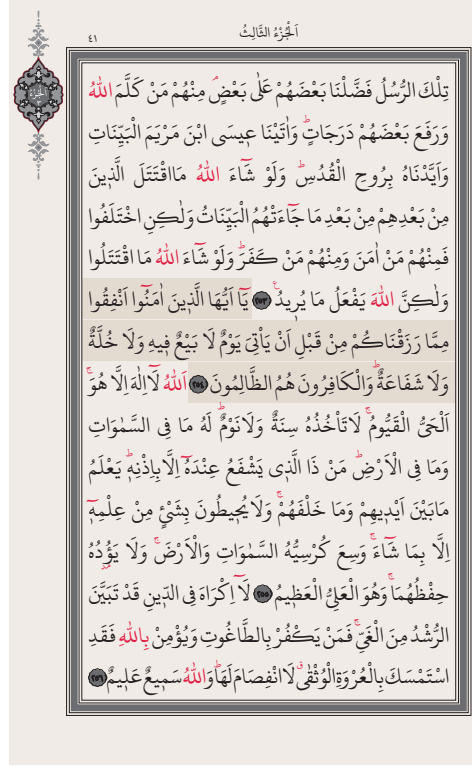 اَلْجُزْءُ الثَّالِثُ
٤١
تِلْكَ الرُّسُلُ فَضَّلْنَا بَعْضَهُمْ عَلٰى بَعْضٍۢ مِنْهُمْ مَنْ كَلَّمَ اللّٰهُ
وَرَفَعَ بَعْضَهُمْ دَرَجَاتٍۜ وَاٰتَيْنَا ع۪يسَى ابْنَ مَرْيَمَ الْبَيِّنَاتِ
وَاَيَّدْنَاهُ بِرُوحِ الْقُدُسِۜ وَلَوْ شَٓاءَ اللّٰهُ مَااقْتَتَلَ الَّذ۪ينَ
مِنْ بَعْدِهِمْ مِنْ بَعْدِ مَا جَٓاءَتْهُمُ الْبَيِّنَاتُ وَلٰكِنِ اخْتَلَفُوا
فَمِنْهُمْ مَنْ اٰمَنَ وَمِنْهُمْ مَنْ كَفَرَۜ وَلَوْ شَٓاءَ اللّٰهُ مَا اقْتَتَلُوا
وَلٰكِنَّ اللّٰهَ يَفْعَلُ مَا يُر۪يدُ۟ ﴿٢٥٣﴾ يَٓا اَيُّهَا الَّذ۪ينَ اٰمَنُٓوا اَنْفِقُوا
مِمَّا رَزَقْنَاكُمْ مِنْ قَبْلِ اَنْ يَأْتِيَ يَوْمٌ لَا بَيْعٌ ف۪يهِ وَلَا خُلَّةٌ
وَلَا شَفَاعَةٌۜ وَالْكَافِرُونَ هُمُ الظَّالِمُونَ ﴿٢٥٤﴾ اَللّٰهُ لَٓا اِلٰهَ اِلَّا هُوَۚ
اَلْحَيُّ الْقَيُّومُۚ لَا تَأْخُذُهُ سِنَةٌ وَلَا نَوْمٌۜ لَهُ مَا فِي السَّمٰوَاتِ
وَمَا فِي الْاَرْضِۜ مَنْ ذَا الَّذ۪ي يَشْفَعُ عِنْدَهُٓ اِلَّا بِاِذْنِه۪ۜ يَعْلَمُ
مَابَيْنَ اَيْد۪يهِمْ وَمَا خَلْفَهُمْۚ وَلَا يُح۪يطُونَ بِشَيْءٍ مِنْ عِلْمِه۪ٓ
اِلَّا بِمَا شَٓاءَۚ وَسِعَ كُرْسِيُّهُ السَّمٰوَاتِ وَالْاَرْضَۚ وَلَا يَؤُ۫دُهُ
حِفْظُهُمَاۚ وَهُوَ الْعَلِيُّ الْعَظ۪يمُ ﴿٢٥٥﴾ لَٓا اِكْرَاهَ فِي الدّ۪ينِ قَدْ تَبَيَّنَ
الرُّشْدُ مِنَ الْغَيِّۚ فَمَنْ يَكْفُرْ بِالطَّاغُوتِ وَيُؤْمِنْ بِاللّٰهِ فَقَدِ
اسْتَمْسَكَ بِالْعُرْوَةِ الْوُثْقٰىۗ لَا انْفِصَامَ لَهَاۜ وَاللّٰهُ سَم۪يعٌ عَل۪يمٌ ﴿٢٥٦﴾